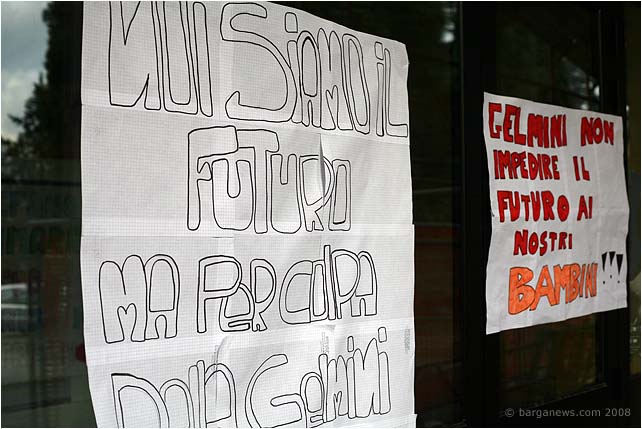 NOI SiAMO iL
FUTURO
MA PER COlPA
DellA Gelmini
GELMINI NON
IMPEDIRE IL
FUTURO AI
NOSTRI
BAMBINI!!!
© barganews.com 2008